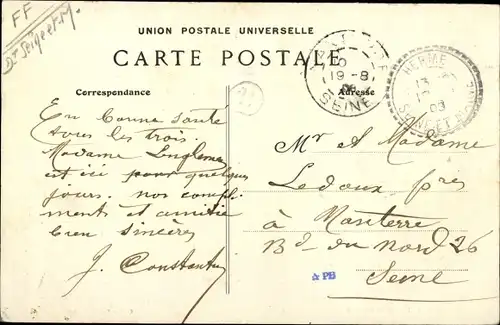 FF
Dr Seine et M.
UNION POSTALE UNIVERSELLE
CARTE POSTALE
NANTERRE
19-8
08
SEINE
HERMÉ
13
08
SEINE ET MARNE
Correspondance
Adresse
En bonne santé
tous les trois.
Madame Lenglemez
est ici pour quelques
jours. nos compli
ments et amitié
bien sincères
J. Constantin
Mr et Madame
Ledoux père
à Nanterre
Bd du Nord 26
Seine
& PB